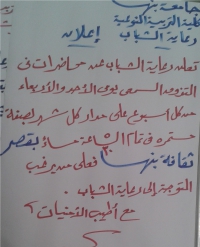 جامعة بنها
كلية التربية النوعية
رعاية الشباب إعلان
تعلن رعاية الشباب عن محاضرات فى
التذوق السمعى يومى الأحد والأربعاء
من كل أسبوع على مدار كل شهر بصفة
مستمرة فى تمام الساعة مساءً بقصر
ثقافة بنها فعلى من يرغب
التوجه إلى رعاية الشباب .
مع أطيب الأمنيات ،